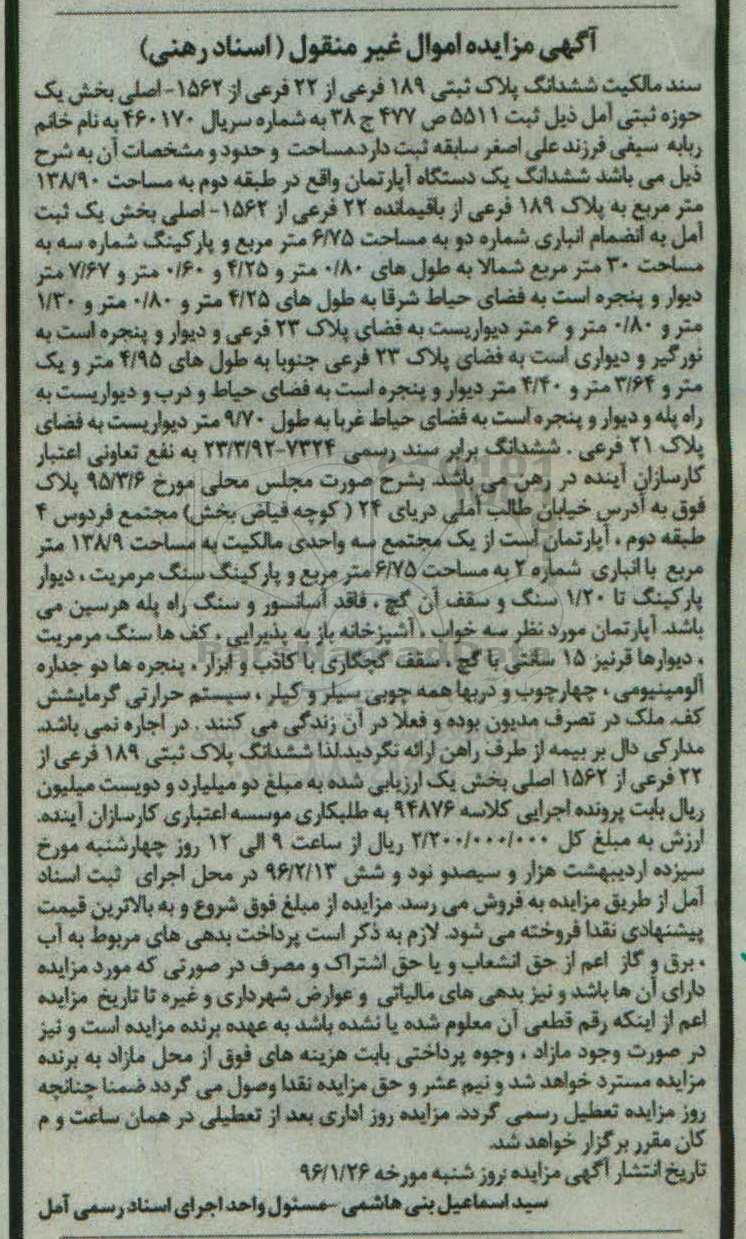 آگهی مزایده اموال غیر منقول (اسناد رهنی)
سند مالکیت ششدانگ پلاک ثبتی ۱۸۹ فرعی از ۲۲ فرعی از ۱۵۶۲- اصلی بخش یک
حوزه ثبتی آمل ذیل ثبت ۵۵۱۱ ص ۴۷۷ ج ۳۸ به شماره سریال ۴۶۰۱۷۰ به نام خانم
ربابه سیفی فرزند علی اصغر سابقه ثبت دارد.مساحت و حدود و مشخصات آن به شرح
ذیل می باشد ششدانگ یک دستگاه آپارتمان واقع در طبقه دوم به مساحت ۱۳۸/۹۰
متر مربع به پلاک ۱۸۹ فرعی از باقیمانده ۲۲ فرعی از ۱۵۶۲- اصلی بخش یک ثبت
آمل به انضمام انباری شماره دو به مساحت ۶/۷۵ متر مربع و پارکینگ شماره سه به
مساحت ۳۰ متر مربع شمالا به طول های ۰/۸۰ متر و ۴/۲۵ و ۰/۶۰ متر و ۷/۶۷ متر
دیوار و پنجره است به فضای حیاط شرقا به طول های ۴/۲۵ متر و ۰/۸۰ متر و ۱/۳۰
متر و ۰/۸۰ متر و ۶ متر دیواریست به فضای پلاک ۲۳ فرعی و دیوار و پنجره است به
نورگیر و دیواری است به فضای پلاک ۲۳ فرعی جنوبا به طول های ۴/۹۵ متر و یک
متر و ۳/۶۴ متر و ۴/۴۰ متر دیوار و پنجره است به فضای حیاط و درب و دیواریست به
راه پله و دیوار و پنجره است به فضای حیاط غربا به طول ۹/۷۰ متر دیواریست به فضای
پلاک ۲۱ فرعی . ششدانگ برابر سند رسمی ۷۳۲۴-۲۳/۳/۹۲ به نفع تعاونی اعتبار
کارسازان آینده در رهن می باشد. بشرح صورت مجلس محلی مورخ ۹۵/۳/۶ پلاک
فوق به آدرس خیابان طالب آملی دریای ۲۴ ( کوچه فیاض بخش) مجتمع فردوس ۴
طبقه دوم ، آپارتمان است از یک مجتمع سه واحدی مالکیت به مساحت ۱۳۸/۹ متر
مربع با انباری شماره ۲ به مساحت ۶/۷۵ متر مربع و پارکینگ سنگ مرمریت ، دیوار
پارکینگ تا ۱/۲۰ سنگ و سقف آن گچ ، فاقد آسانسور و سنگ راه پله هرسین می
باشد. آپارتمان مورد نظر سه خواب ، آشپزخانه باز به پذیرایی ، کف ها سنگ مرمریت
، دیوارها قرنیز ۱۵ سانتی با گچ ، سقف گچکاری با کاذب و ابزار ، پنجره ها دو جداره
آلومینیومی ، چهارچوب و دربها همه چوبی سیلر و کیلر ، سیستم حرارتی گرمایشش
کف. ملک در تصرف مدیون بوده و فعلا در آن زندگی می کنند . در اجاره نمی باشد.
مدارکی دال بر بیمه از طرف راهن ارائه نگردید.لذا ششدانگ پلاک ثبتی ۱۸۹ فرعی از
۲۲ فرعی از ۱۵۶۲ اصلی بخش یک ارزیابی شده به مبلغ دو میلیارد و دویست میلیون
ریال بابت پرونده اجرایی کلاسه ۹۴۸۷۶ به طلبکاری موسسه اعتباری کارسازان آینده.
ارزش به مبلغ کل ۲/۲۰۰/۰۰۰/۰۰۰ ریال از ساعت ۹ الی ۱۲ روز چهارشنبه مورخ
سیزده اردیبهشت هزار و سیصدو نود و شش ۹۶/۲/۱۳ در محل اجرای ثبت اسناد
آمل از طریق مزایده به فروش می رسد. مزایده از مبلغ فوق شروع و به بالاترین قیمت
پیشنهادی نقدا فروخته می شود. لازم به ذکر است پرداخت بدهی های مربوط به آب
، برق و گاز اعم از حق انشعاب و یا حق اشتراک و مصرف در صورتی که مورد مزایده
دارای آن ها باشد و نیز بدهی های مالیاتی و عوارض شهرداری و غیره تا تاریخ مزایده
اعم از اینکه رقم قطعی آن معلوم شده یا نشده باشد به عهده برنده مزایده است و نیز
در صورت وجود مازاد ، وجوه پرداختی بابت هزینه های فوق از محل مازاد به برنده
مزایده مسترد خواهد شد و نیم عشر و حق مزایده نقدا وصول می گردد ضمنا چنانچه
روز مزایده تعطیل رسمی گردد. مزایده روز اداری بعد از تعطیلی در همان ساعت و م
کان مقرر برگزار خواهد شد.
تاریخ انتشار آگهی مزایده :روز شنبه مورخه ۹۶/۱/۲۶
سید اسماعیل بنی هاشمی -مسئول واحد اجرای اسناد رسمی آمل